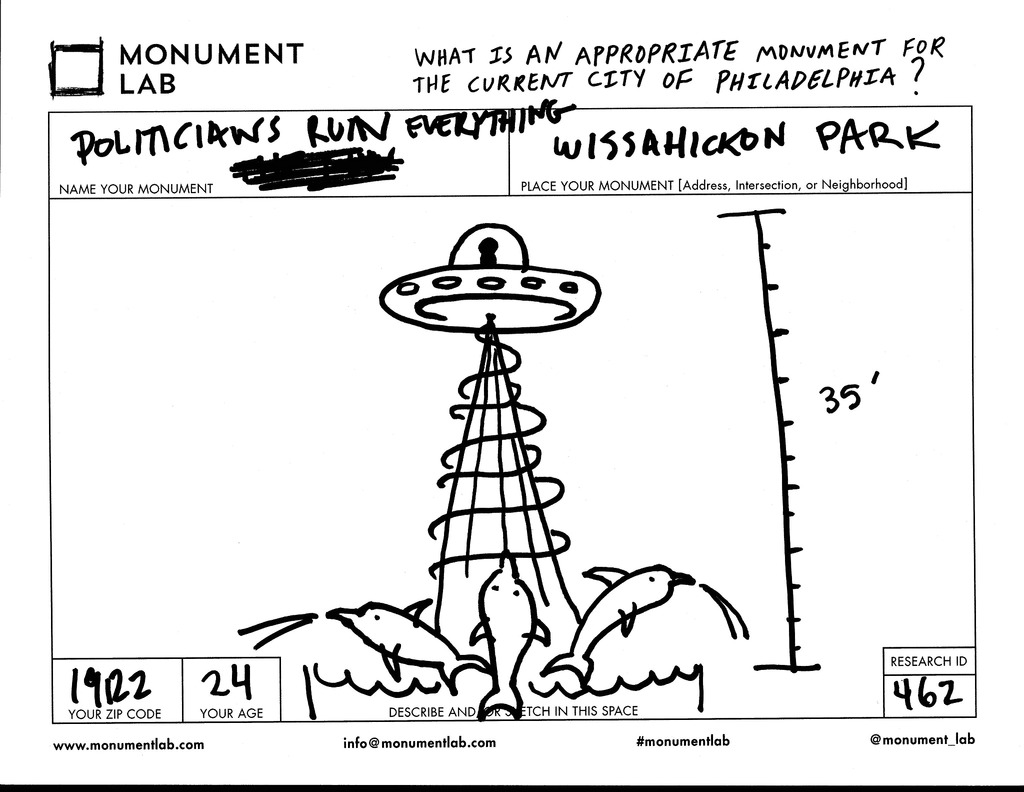 MONUMENT
LAB
WHAT IS AN APPROPRIATE MONUMENT FOR
THE CURRENT CITY OF PHILADELPHIA?
POLITICIANS RUIN EVERYTHING
NAME YOUR MONUMENT
WISSAHICKON PARK
PLACE YOUR MONUMENT [Address, Intersection, or Neighborhood]
35'
19122
YOUR ZIP CODE
24
YOUR AGE
DESCRIBE AND/OR SKETCH IN THIS SPACE
RESEARCH ID
462
www.monumentlab.com
info@monumentlab.com
#monumentlab
@monument_lab